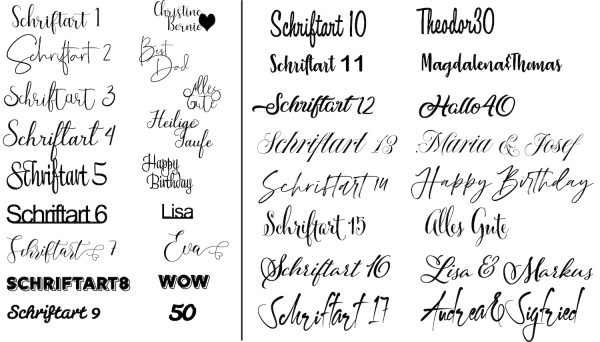 Schriftart 1
Christine
Bernie
Schriftart 2
Best
Dad
Schriftart 3
Alles
Gute
Schriftart 4
Heilige
Taufe
Schriftart 5
Happy
Birthday
Schriftart 6
Lisa
Schriftart 7
Eva
SCHRIFTART8
WOW
Schriftart 9
50
Schriftart 10
Theodor30
Schriftart 11
Magdalena&Thomas
Schriftart 12
Hallo40
Schriftart 13
Maria & Josef
Schriftart 14
Happy Birthday
Schriftart 15
Alles Gute
Schriftart 16
Lisa & Markus
Schriftart 17
Andrea&Sigfried